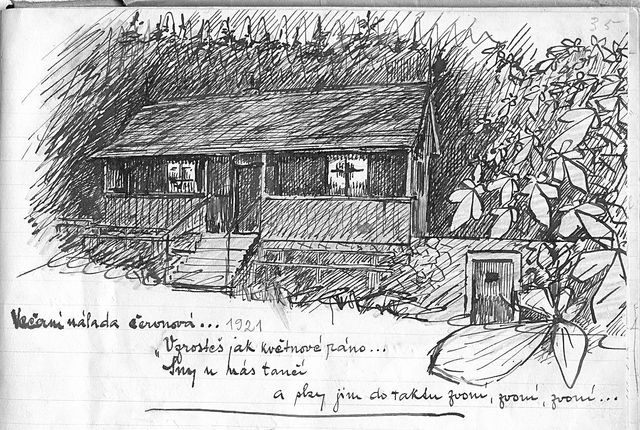 35
Večerní nálada červnová... 1921
„Vzrosteš jak květnové ráno...
Sny u nás tančí
a slzy jim do taktu zvoní, zvoní, zvoní...